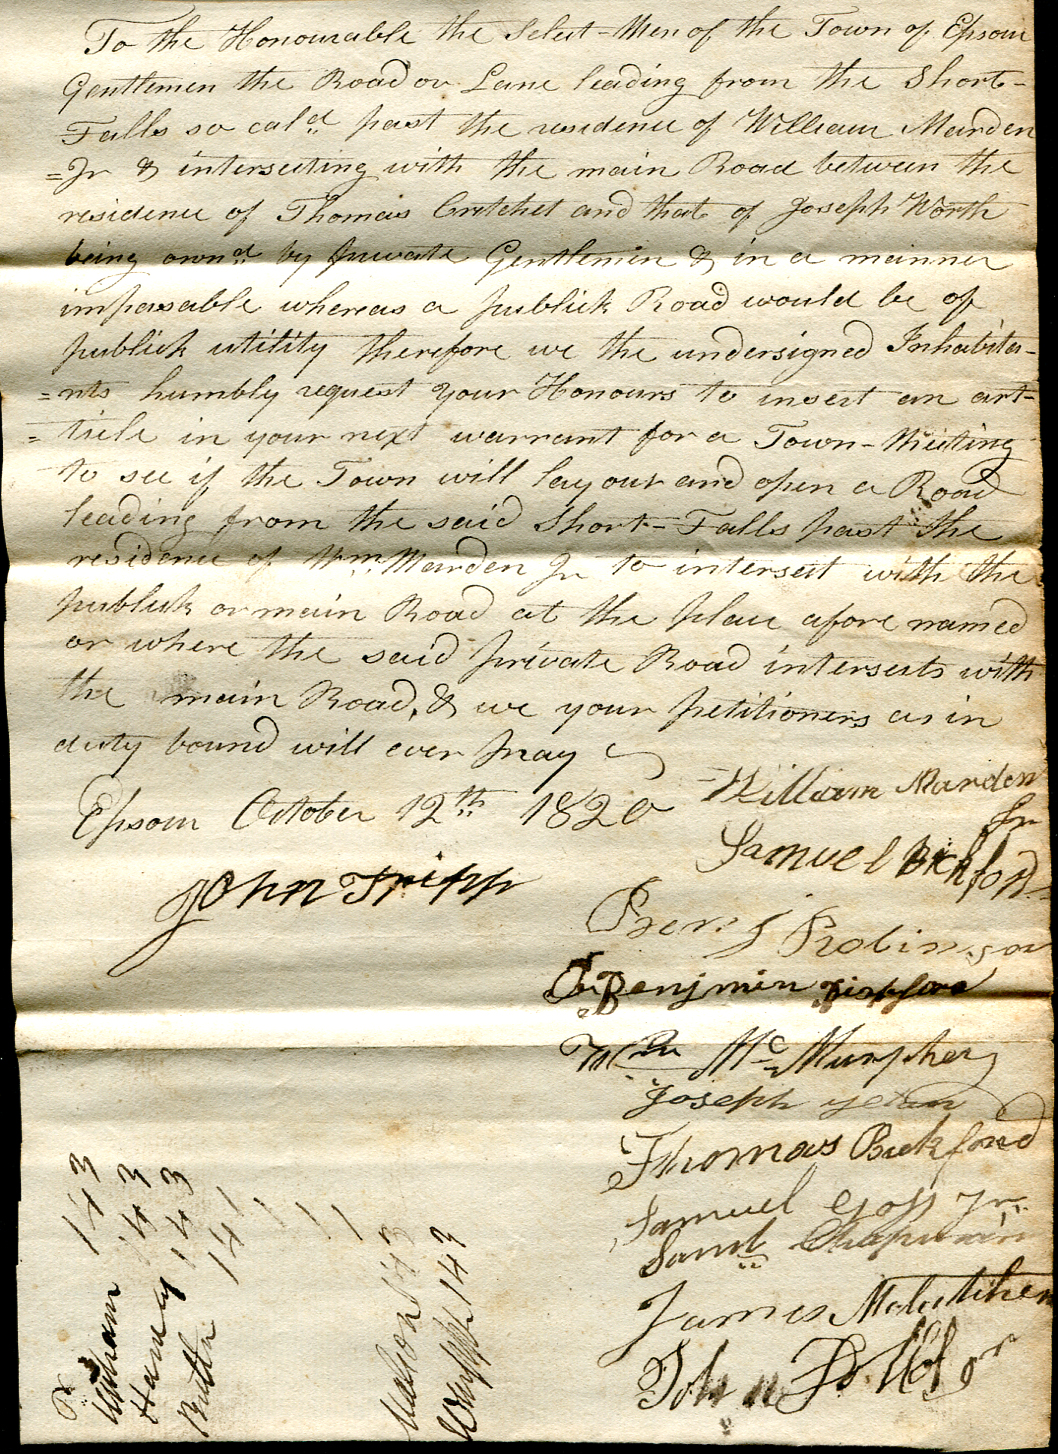 To the Honourable the Select-Men of the Town of Epsom
Gentlemen the Road or Lane leading from the Short-
Falls so cal.d past the residence of William Marden
=Jr & intersecting with the main Road between the
residence of Thomas Critchet and that of Joseph Worth
being own.d by private Gentlemen & in a manner
impassable whereas a publick Road would be of
publick utility therefore we the undersigned Inhabita-
=nts humbly request your Honours to insert an art-
=ticle in your next warrant for a Town-Meeting
to see if the Town will lay out and open a Road
leading from the said Short-Falls past the
residence of Wm. Marden Jr to intersect with the
publick or main Road at the place afore named
or where the said private Road intersects with
the main Road, & we your petitioners as in
duty bound will ever pray
Epsom October 12th 1820
William Marden
Jr
Samuel Bickford
John Tripp
Benj Robinson
Benjmin Bickford
Wm McMurphey
Joseph yeton
Thomas Bickford
Samuel Goss Jr.
Saml Chapman
James McCutchen
John Dolbeer
143
Harvey 143
Butler 143
141
143
143